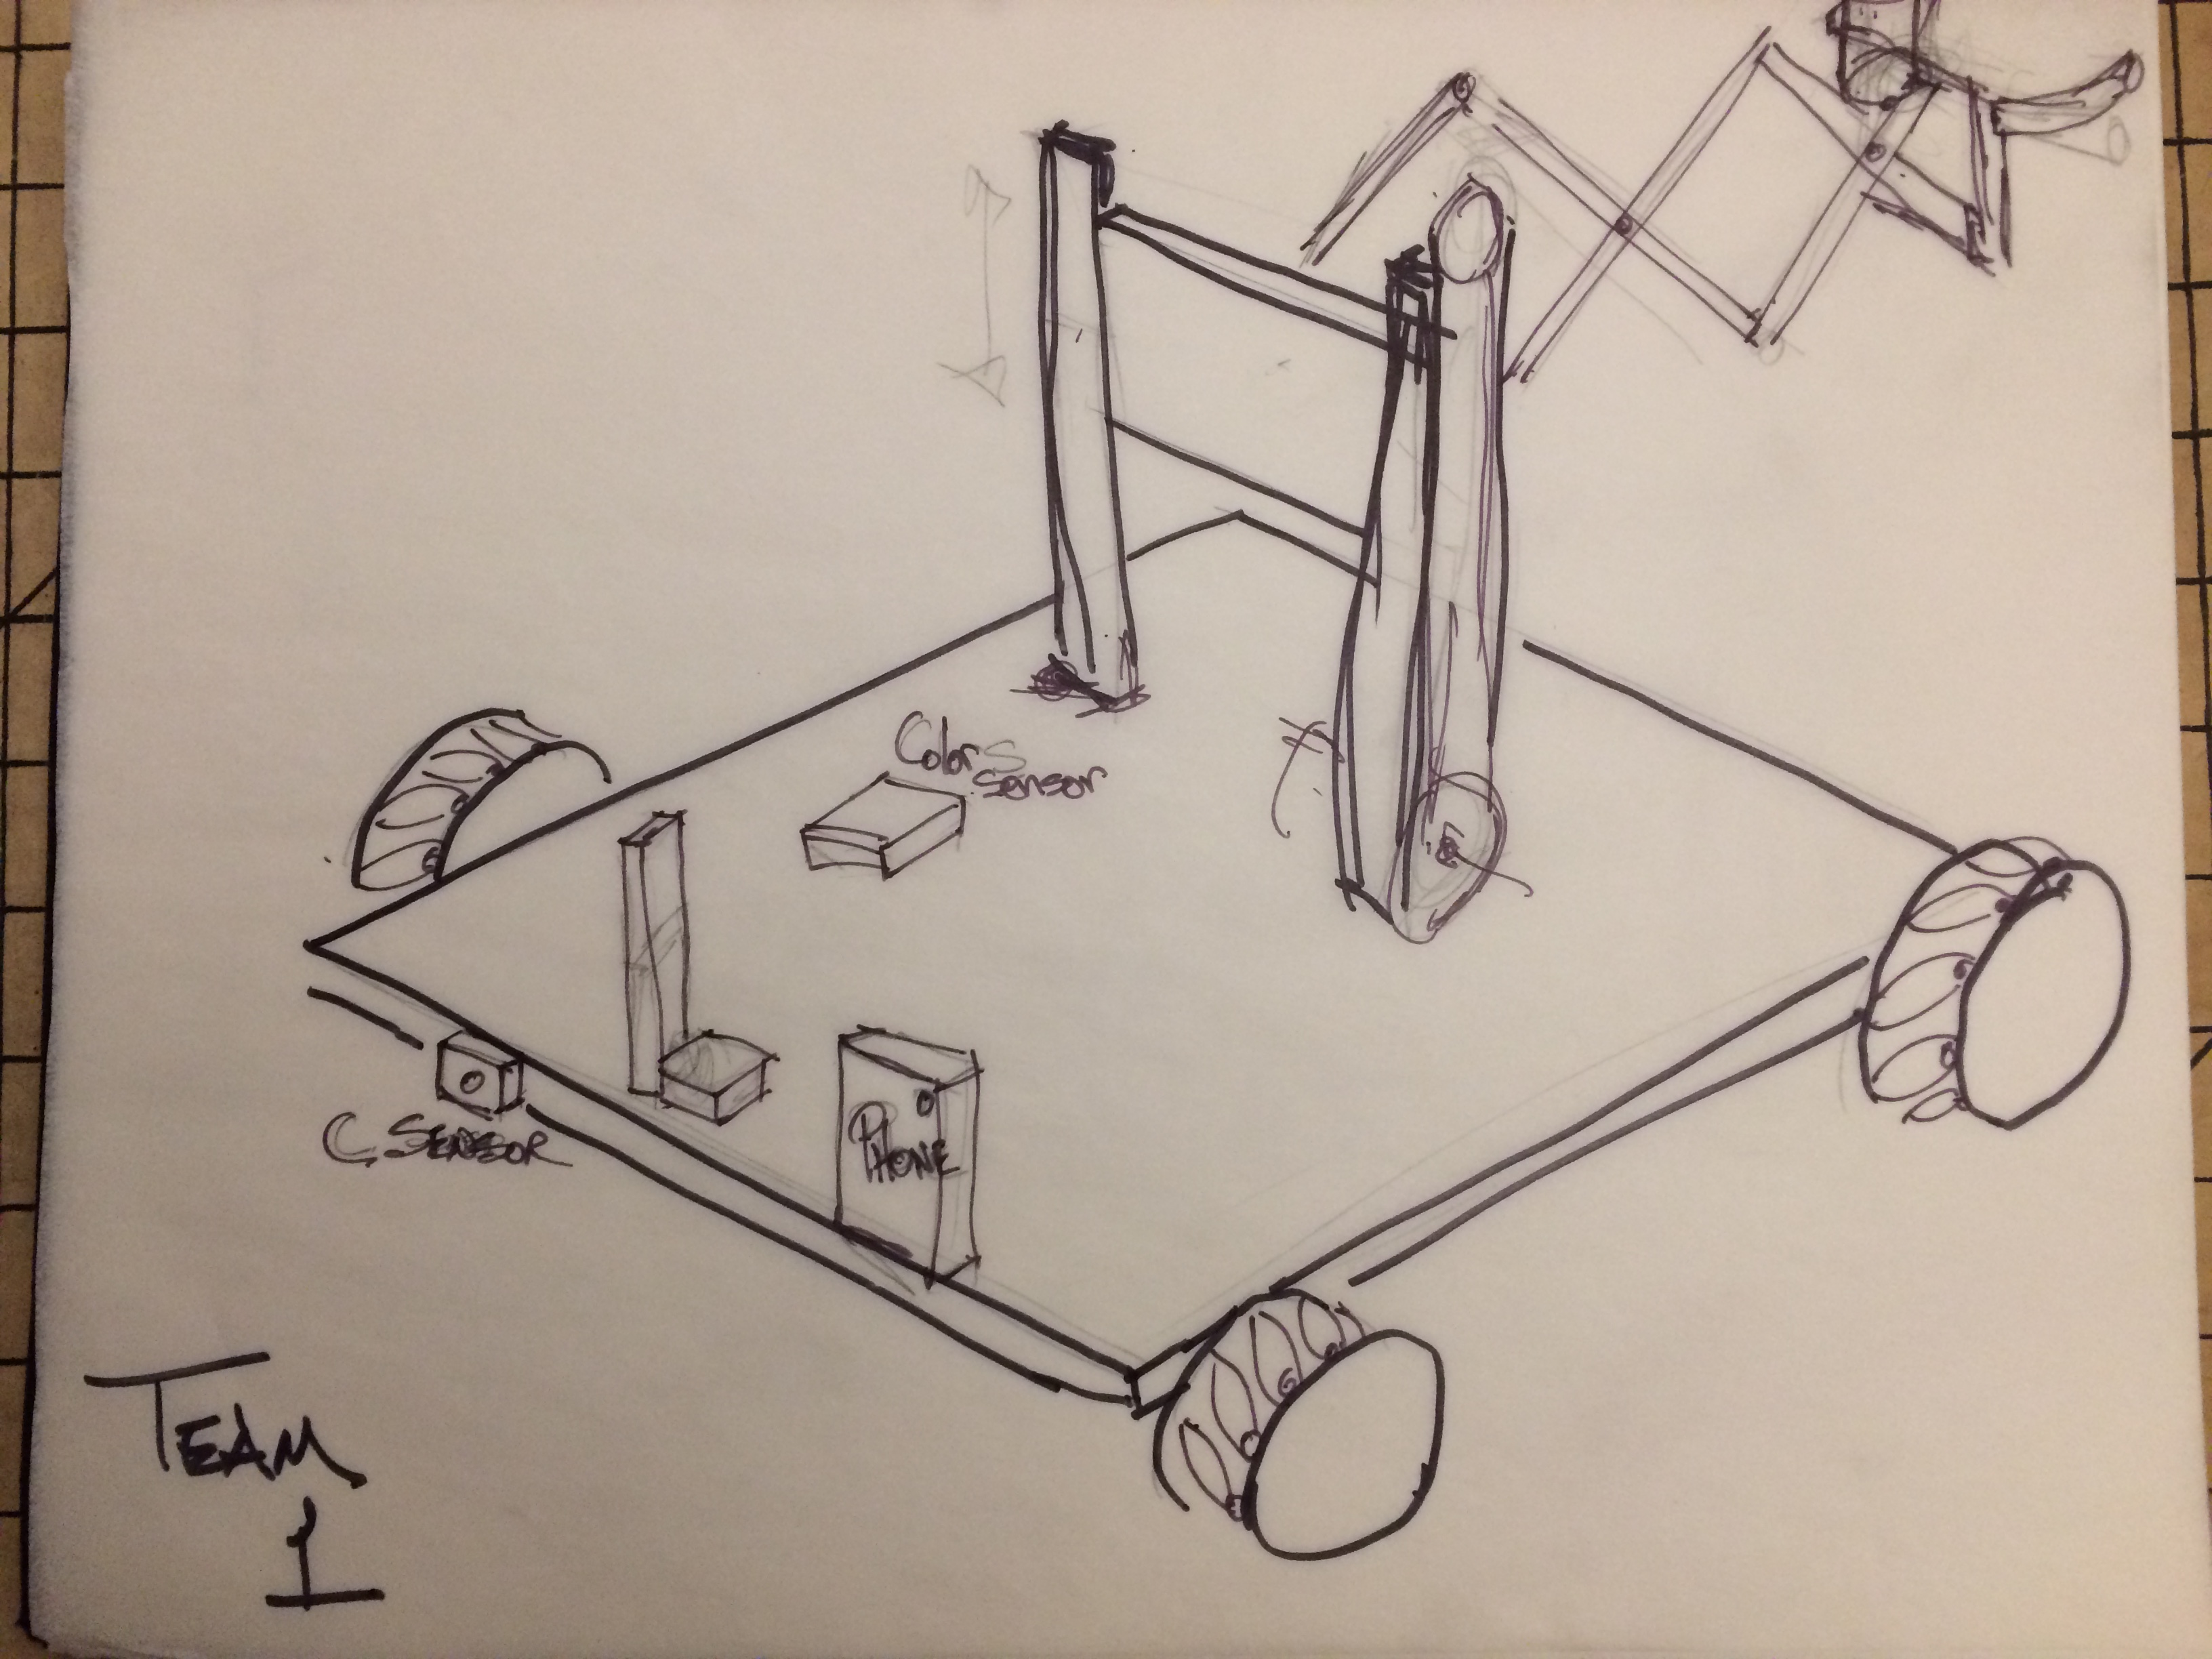 Color S
Sensor
C SENSOR
PHONE
TEAM
1